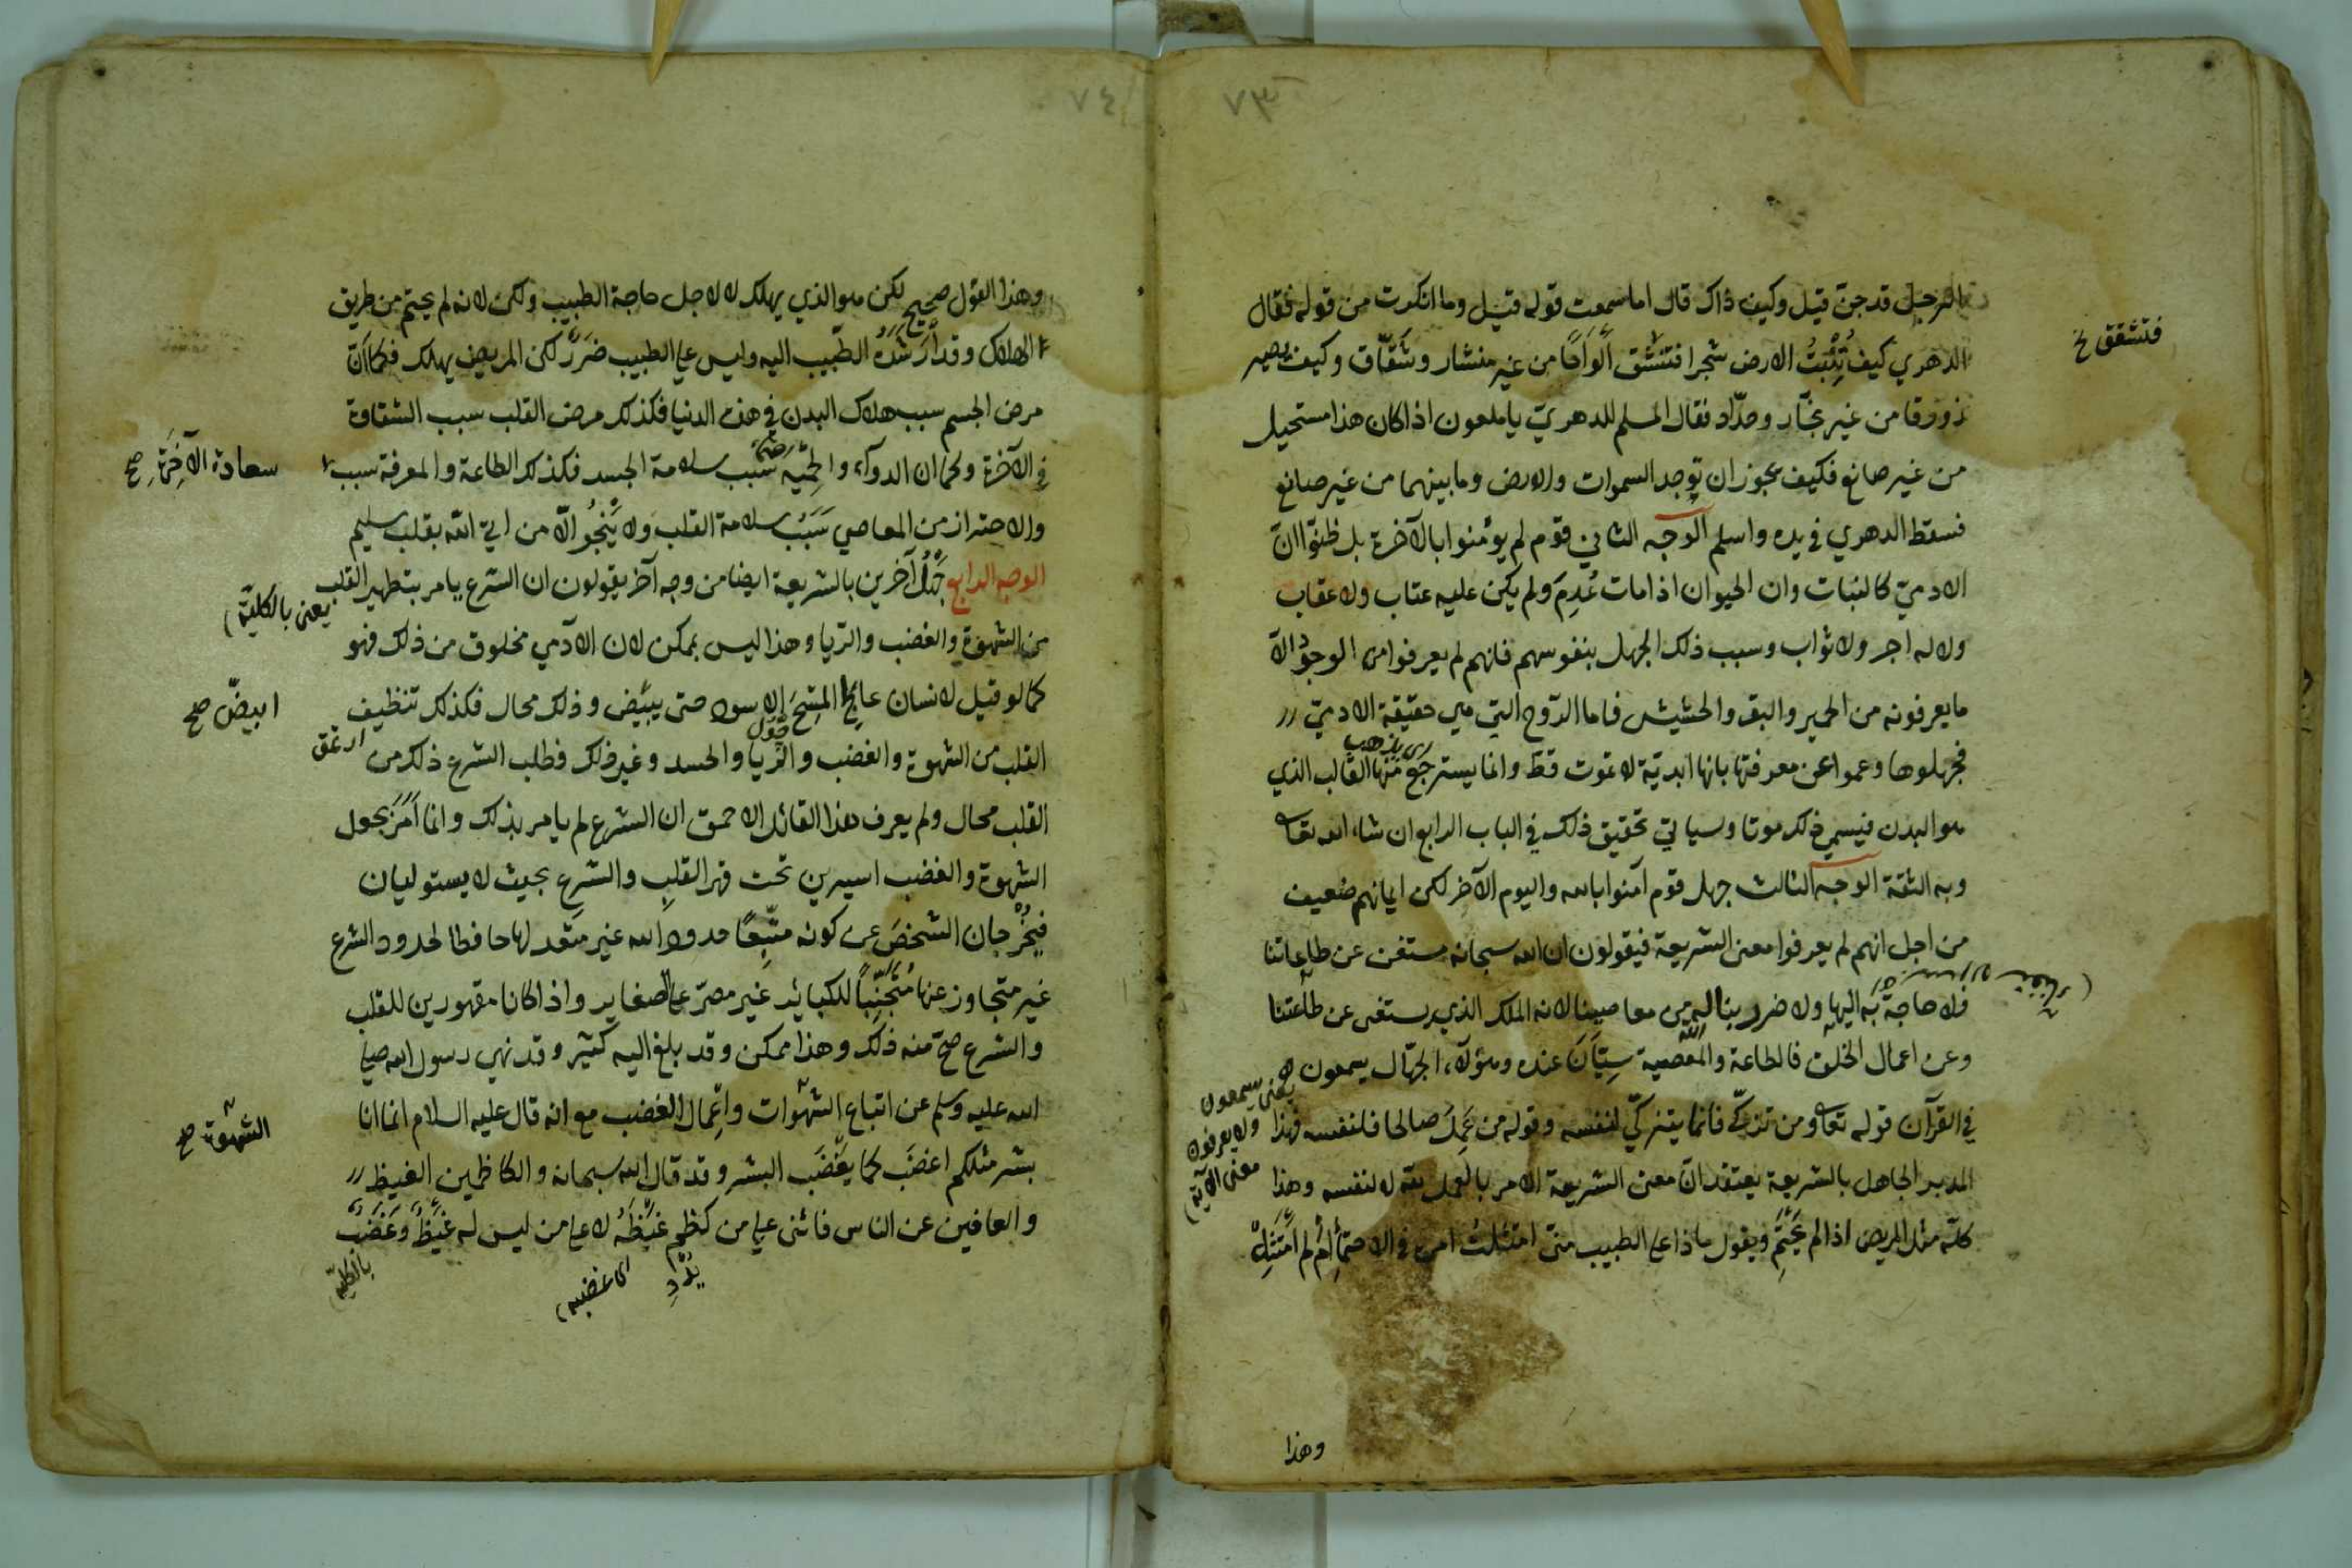 ٧٣
الرجل قد جن قيل وكيف ذاك قال اما سمعت قوله قيل وما انكرت من قوله فقال
الدهري كيف تُنْبِتُ الارض شجرا فتنشق الواحًا من غير منشار وشقّاق وكيف يصير
فتشقق خ
زورقا من غير نجّار وحدّاد فقال المسلم للدهريّ يا ملعون اذا كان هذا مستحيل
من غير صانع فكيف يجوز ان توجد السموات والارض وما بينهما من غير صانع
فسقط الدهري في يده واسلم الوجه الثاني قوم لم يؤمنوا بالآخرة بل ظنّوا انّ
الادميّ كالنبات وان الحيوان اذا مات عُدِمَ ولم يكن عليه عتاب ولا عقاب
ولا له اجر ولا ثواب وسبب ذلك الجهل بنفوسهم فانهم لم يعرفوا من الوجود الّا
ما يعرفونه من الحمير والبقر والحشيش فاما الرّوح التي هي حقيقة الادميّ
فجهلوها وعموا عن معرفتها بانها ابديّة لا تموت قطّ وانما يسترجع منها القالب الذي
اى يذهب
هو البدن فيسمي ذلك موتا وسياتي تحقيق ذلك في الباب الرابع ان شاء الله تعالى
وبه الثقة الوجه الثالث جهل قوم آمنوا بالله واليوم الآخر لكن ايمانهم ضعيف
من اجل انهم لم يعرفوا معنى الشريعة فيقولون ان الله سبحانه مستغن عن طاعاتنا
فلا حاجة به اليها ولا ضرر يناله من معاصينا لانه الملك الذي يستغنى عن طاعتنا
وعن اعمال الخلق فالطاعة والمعصية سِيّانَ عنده وهؤلاء الجهّال يسمعون
يعنى يسمعون
ولا يعرفون
معنى الآية
في القرآن قوله تعالى ومن تزكّى فانما يتزكّى لنفسه وقوله من عَمِلَ صالحا فلنفسه فهذا
المدبر الجاهل بالشريعة يعتقد انّ معنى الشريعة الامر بالعمل لله لا لنفسه وهذا
كلّه مثل المريض اذا لم يَحْتَمِ ويقول ماذا على الطبيب متى امتثلت امره في الاحتماء ام لم أَمْتَثِلْ
وهذا
٧٤
وهذا القول صحيح لكن هو الذي يهلك لا لاجل حاجة الطبيب ولكن لانه لم يحتم من طريق
الهلاك وقد أرشَدَهُ الطّبيب اليه وليس على الطبيب ضررٌ لكن المريض يهلك فكما انّ
مرض الجسم سبب هلاك البدن في هذه الدنيا فكذلك مرض القلب سبب الشقاوة
في الآخرة وكما ان الدواء والحِمْيَه سبب سلامة الجسد فكذلك الطاعة والمعرفة سبب
سعادة الآخِرَةِ صح
والاحتراز من المعاصي سَبَبُ سلامة القلب ولا يَنْجُو الّا من اتي الله بقلب سليم
الوجه الرابع جَهْلُ آخرين بالشريعة ايضا من وجه آخر يقولون ان الشرع يامر بتطهير القلب
يعنى بالكليّة
من الشهوة والغضب والرّيا وهذا ليس بممكن لان الادمي مخلوق من ذلك فهو
كما لو قيل لانسان عالج المِسْحَ الاسود حتى يبيّض وذلك محال فكذلك تنظيف
ابيضّ صح
القلب من الشهوة والغضب والرّيا والحسد وغير ذلك فطلب الشرع ذلك من
القلب محال ولم يعرف هذا القائل الاحمق ان الشرع لم يامر بذلك وانما أَمَرَ بجعل
الشهوة والغضب اسيرين تحت قهر القلبِ والشرع بحيث لا يستوليان
فيُخْرِجان الشخصَ عن كونه متّبِعًا حدود الله غير متعد لها حافظا لحدود الشرع
غير متجاوز عنها مُتَجَنِّباً للكبائر غير مصرّ على الصغاير واذا كانا مقهورين للقلب
والشرع صحّ منه ذلك وهذا ممكن وقد بلغ اليه كثير وقد نهي رسول الله صلى
الله عليه وسلم عن اتباع الشهوات واعمال الغضب مع انه قال عليه السلام انما انا
الشهوة صح
بشر مثلكم اغضَب كما يغضَب البشر وقد قال الله سبحانه والكاظمين الغيظ
والعافين عن الناس فاثنى على من كظم غيظَهُ لا على من ليس له غيظٌ وغضبٌ
اى غضبه
بالكليّة